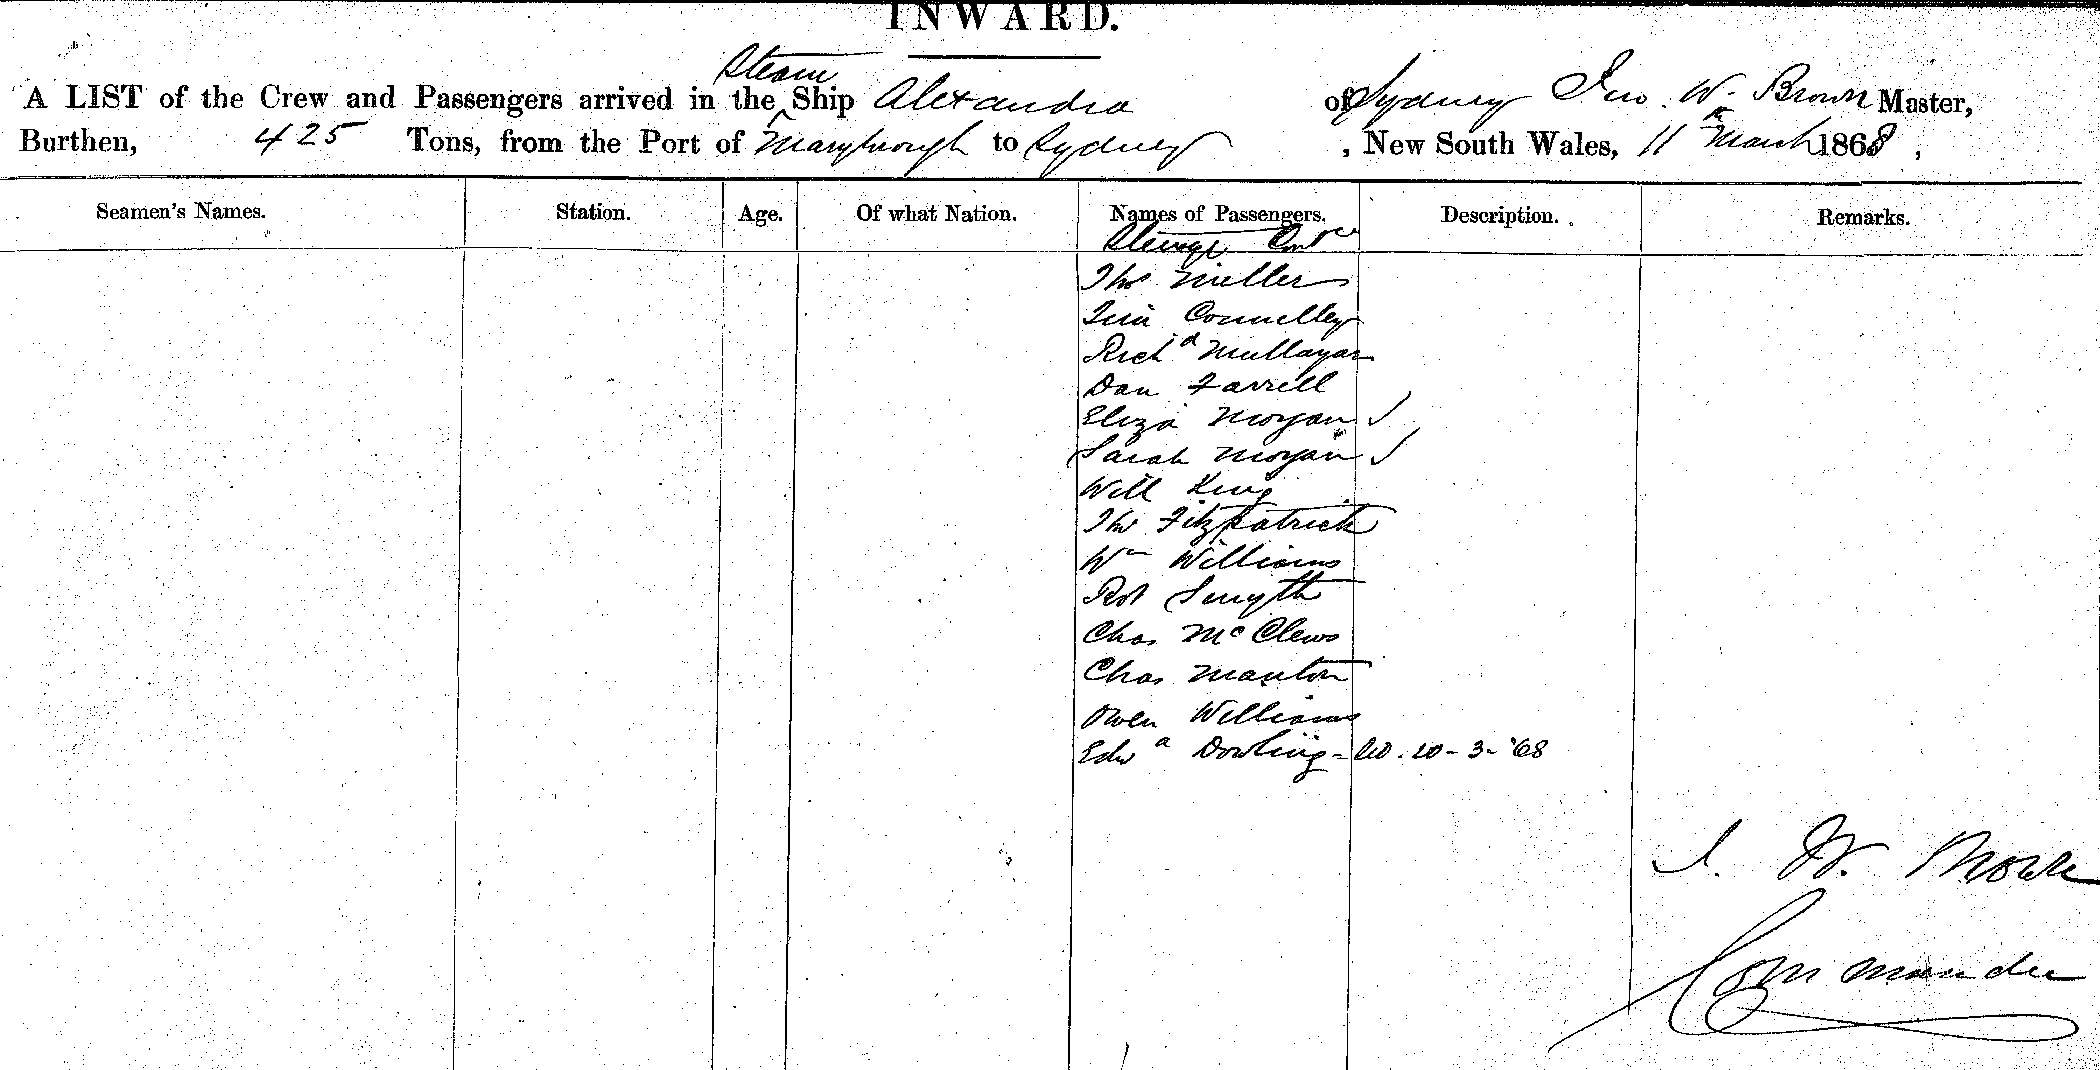 INWARD.
Steam
A LIST of the Crew and Passengers arrived in the Ship Alexandra of Sydney Jno. W. Brown Master,
Burthen, 425 Tons, from the Port of Maryborough to Sydney , New South Wales, 11th March 1868,
Seamen's Names. Station. Age. Of what Nation. Names of Passengers. Description. Remarks.
Steerage
Thos Miller
Jim Connelley
Richd Mullagan
Dan Farrell
Eliza Morgan
Sarah Morgan
Will King
Thos Fitzpatrick
Wm Williams
Rob Smyth
Chas McClews
Chas Manton
Owen Williams
Edwd Dowling - 20-3-'68
J. W. Brown
Commander